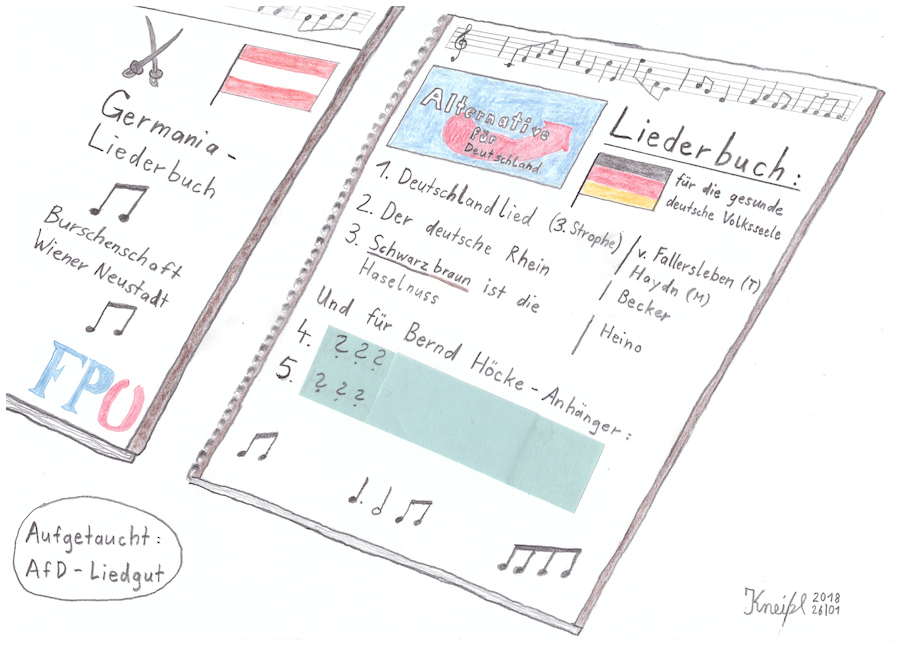 Germania-
Liederbuch
Burschenschaft
Wiener Neustadt
FPO
Alternative
für
Deutschland
Liederbuch:
für die gesunde
deutsche Volksseele
1. Deutschlandlied (3. Strophe)
v. Fallersleben (T)
Haydn (M)
2. Der deutsche Rhein
Becker
3. Schwarzbraun ist die
Haselnuss
Heino
Und für Bernd Höcke-Anhänger:
4. ???
5. ???
Aufgetaucht:
AfD-Liedgut
Kneipl 2018
26/01